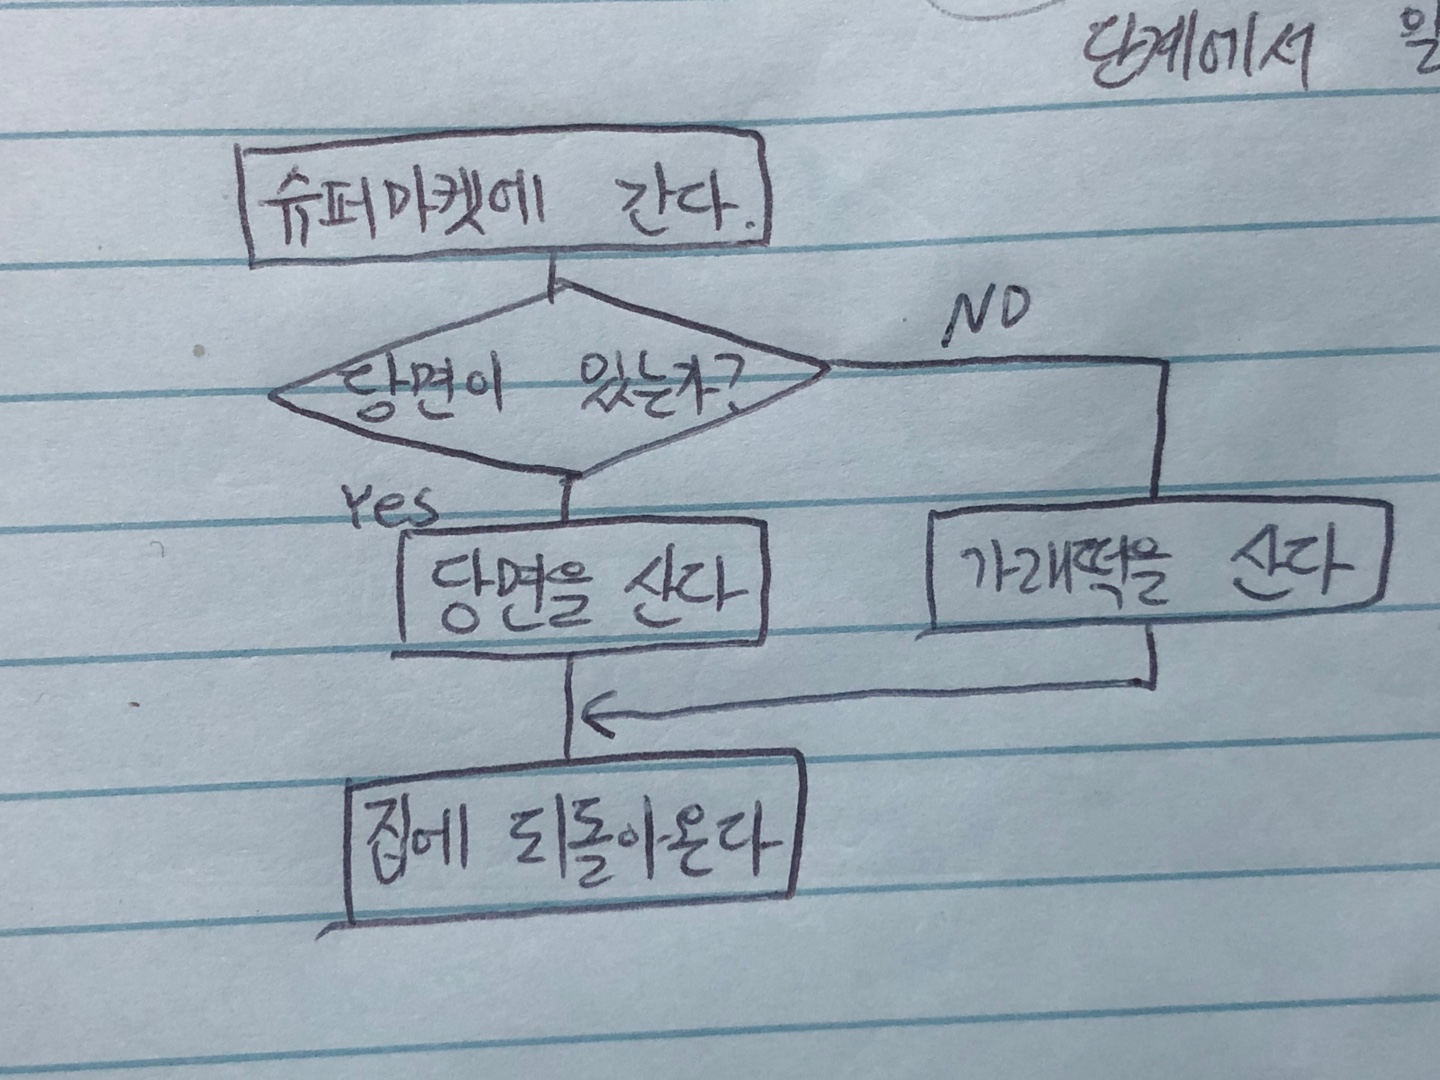 단계에서
슈퍼마켓에 간다.
당면이 있는가?
NO
Yes
당면을 산다
가래떡을 산다
집에 되돌아온다